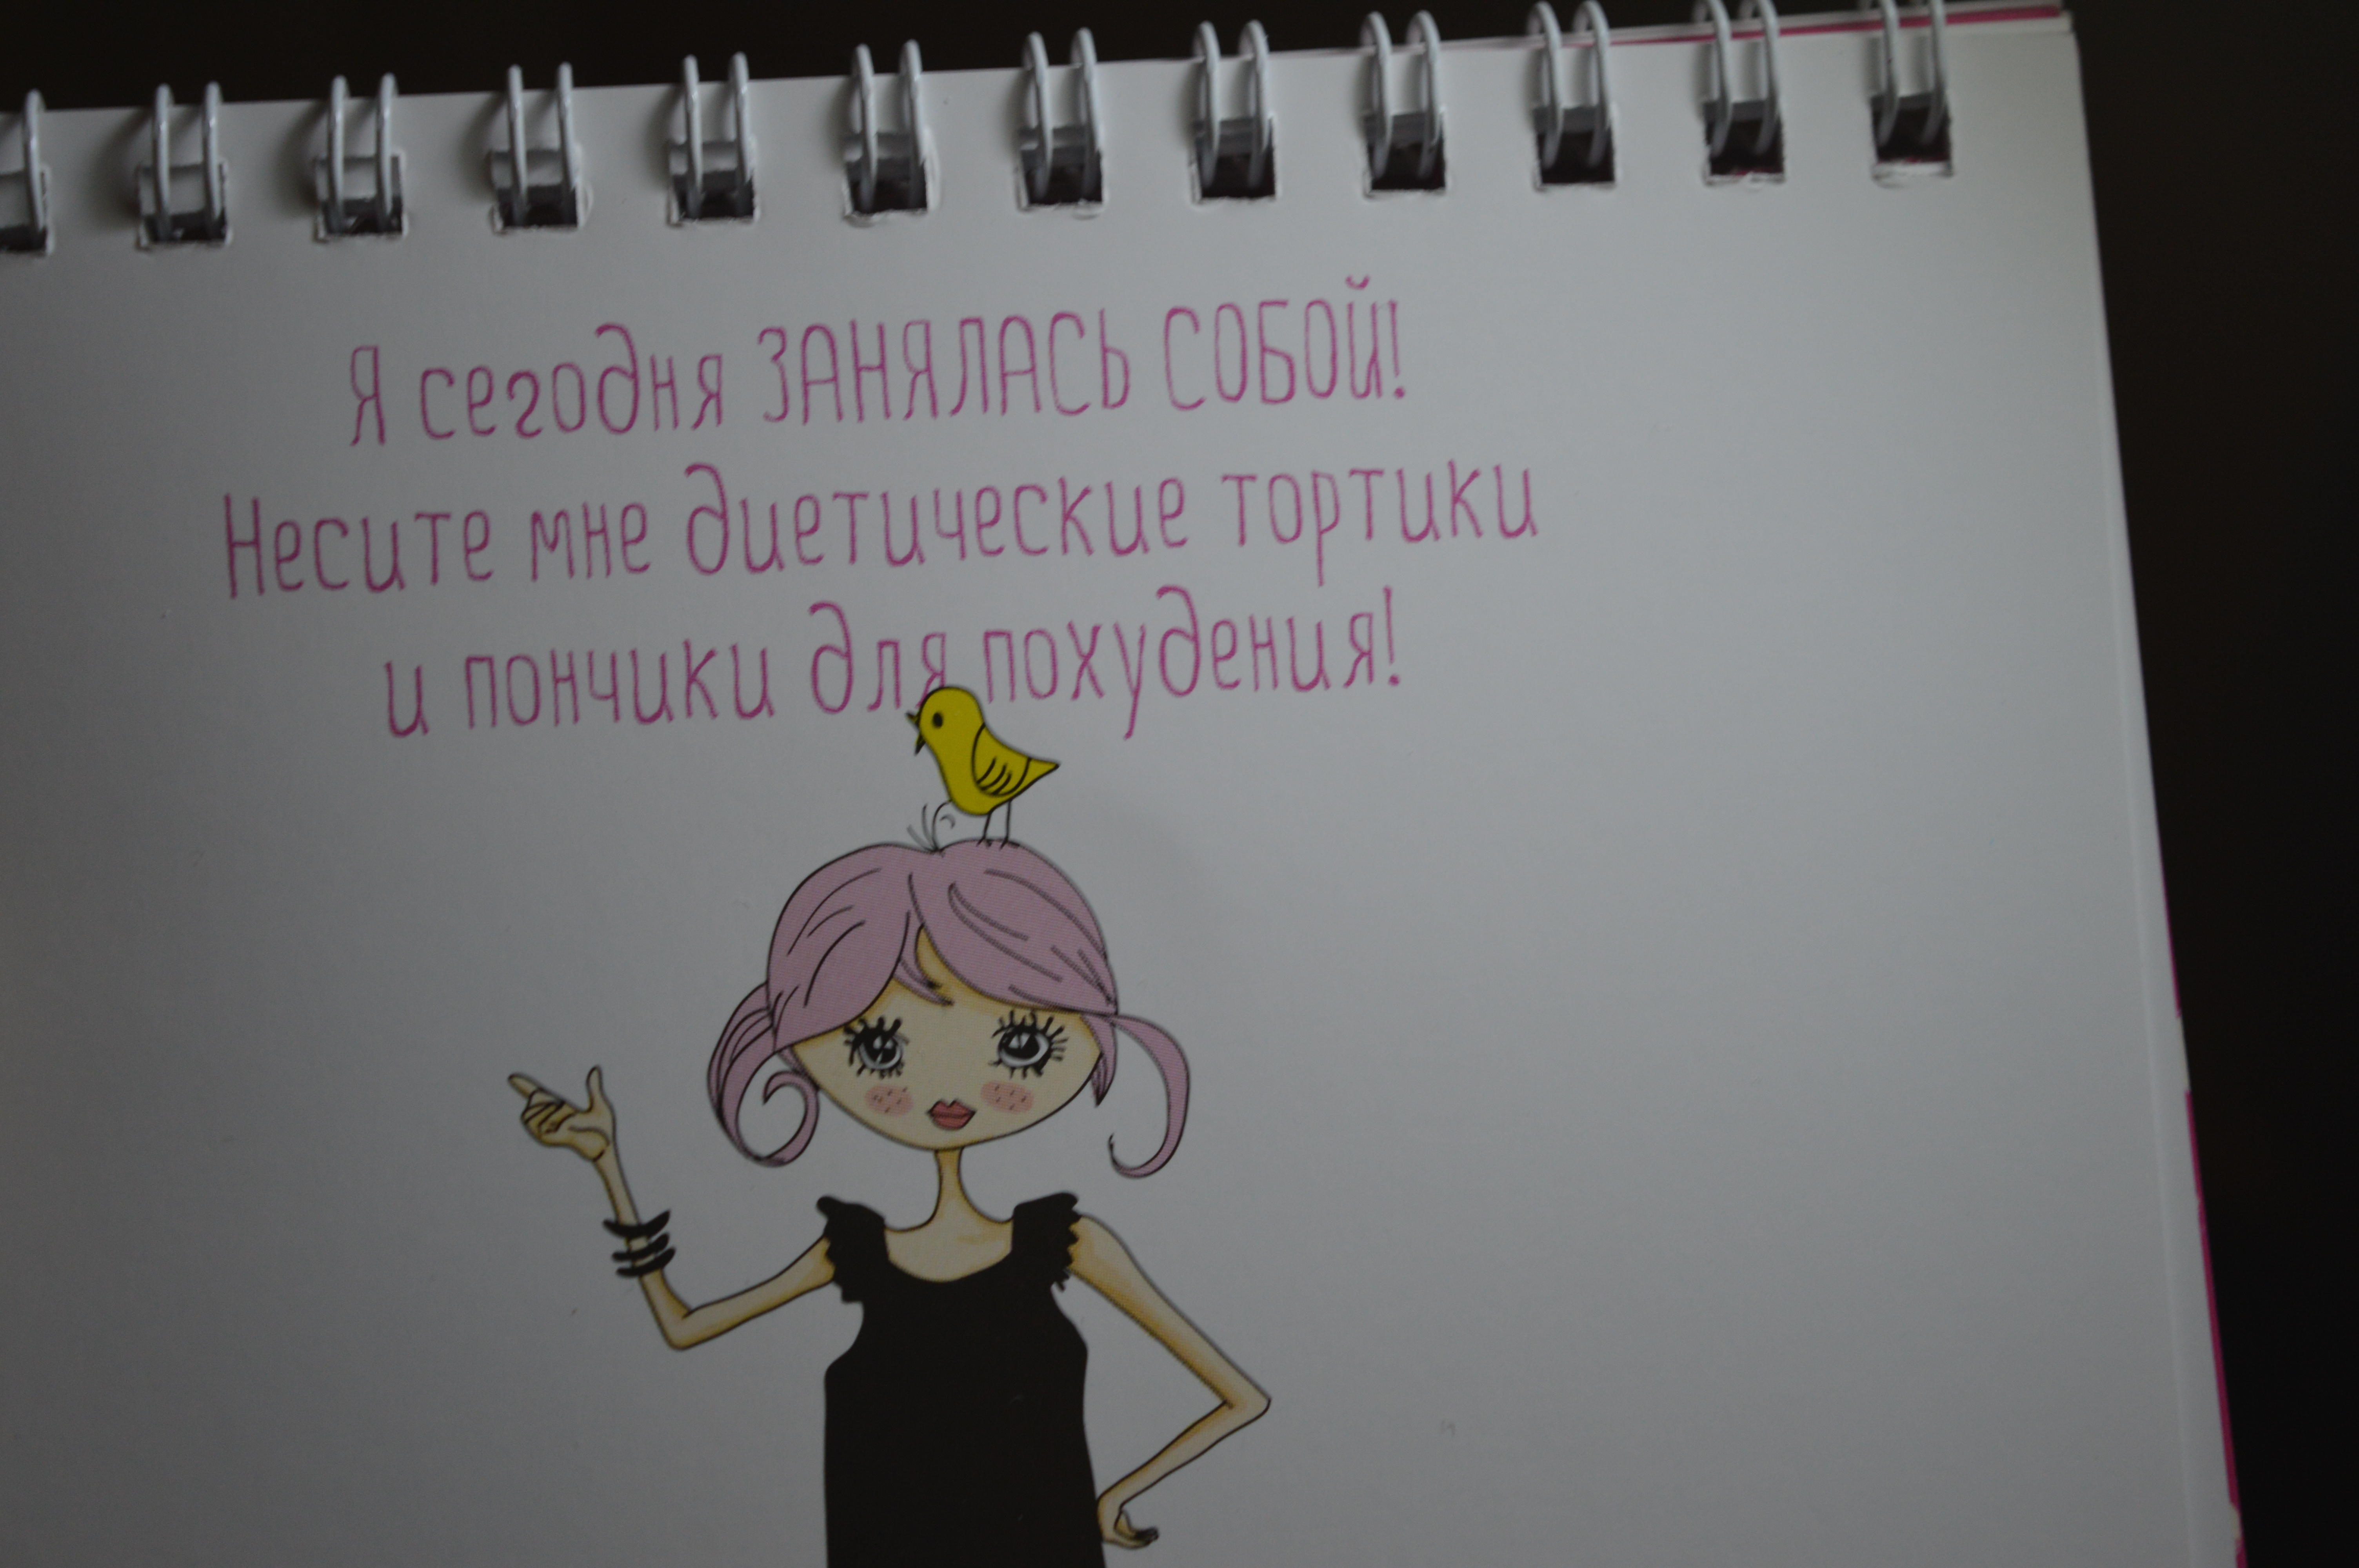 Я сегодня ЗАНЯЛАСЬ СОБОЙ!
Несите мне диетические тортики
и пончики для похудения!